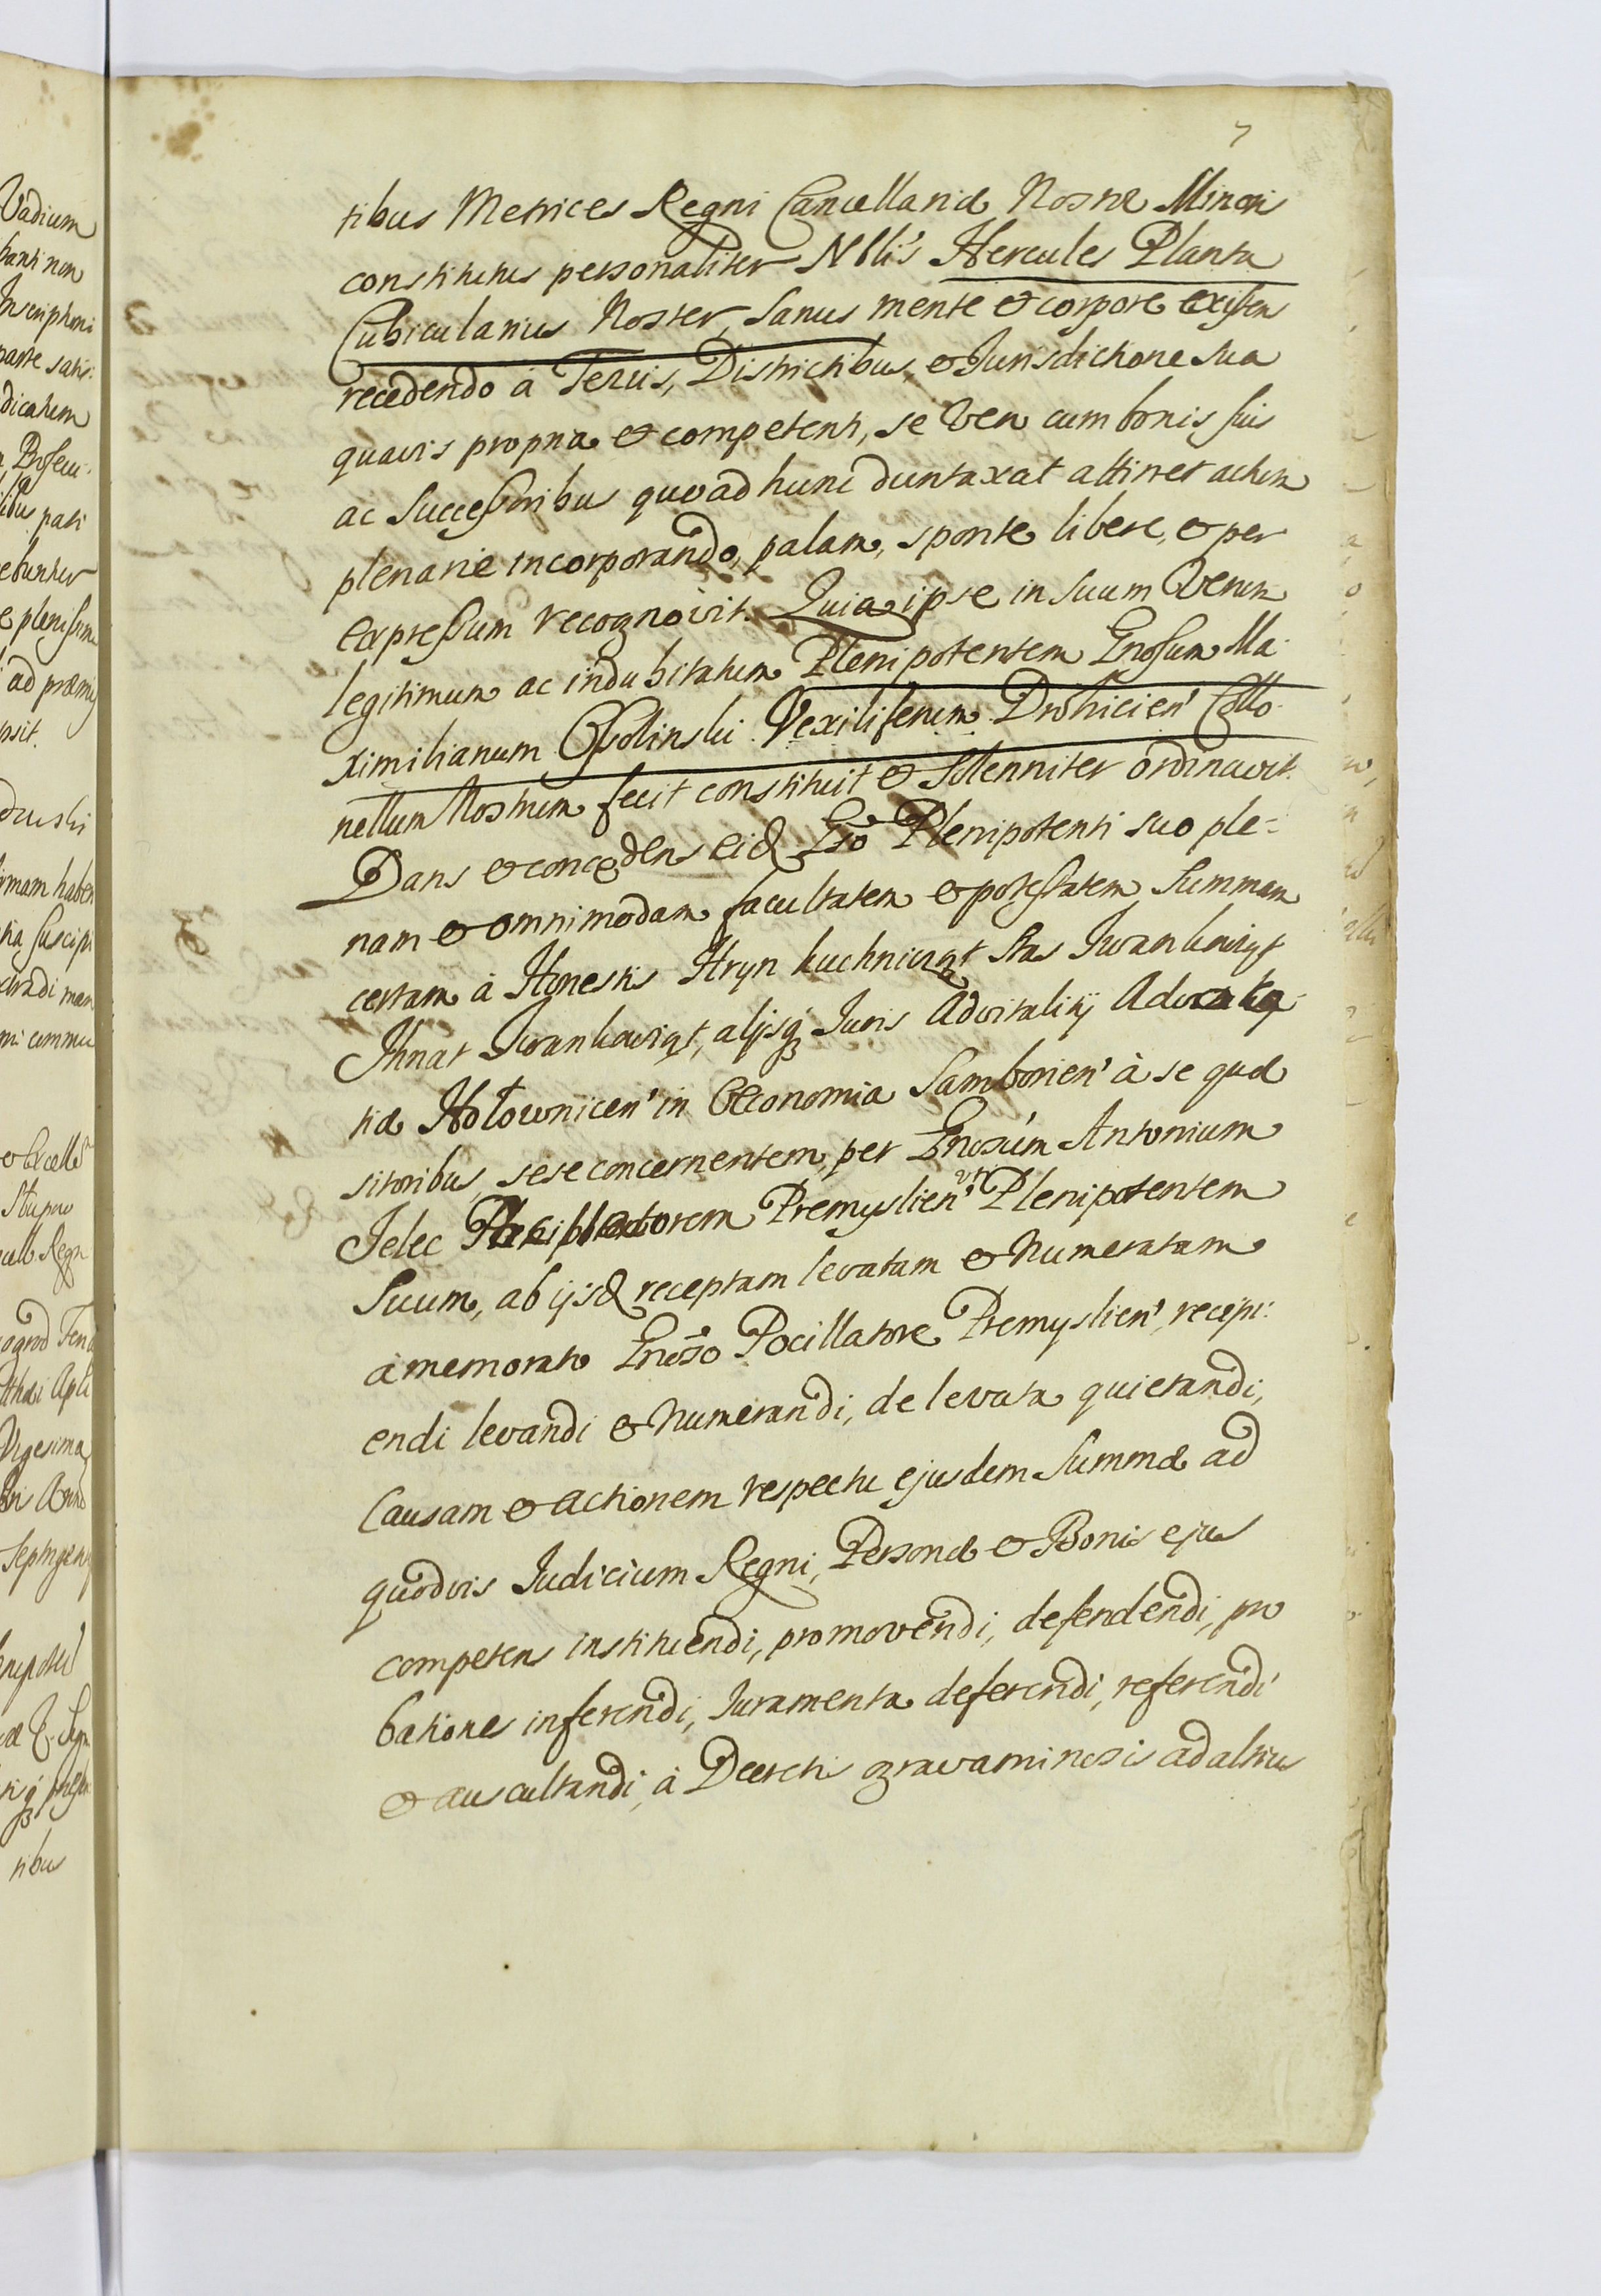 7
tibus Metrices Regni Cancellariæ Nostræ Minoris
constitutus personaliter Nblis Hercules Planta
Cubicularius Noster, Sanus mente & corpore existen
recedendo à Terris, Districtibus, & Jurisdictione sua
quavis propria & competenti, se vero cum bonis suis
ac Successoribus quo ad hunc duntaxat attinet actum
plenarie incorporando, palam, sponte libere, & per
expressum recognovit. Quia ipse in suum verum
legitimum ac indubitatum Plenipotentem Gnosum Ma-
ximilianum Ossolinski Vexiliferum Drohicien' Collo-
nellum Nostrum fecit constituit & Solenniter ordinavit.
Dans & concedens eid Gso Plenipotenti suo ple-
nam & omnimodam facultatem & potestatem Summam
certam à Honestis Hryn Kuchniczyt Stas Iwankowięt
Ihnat Iwankowięt, alijsq Juris Advitalitij Advoca-
tiæ Hołownicen' in Œconomia Samborien' à se quæ
sitoribus, sese concernentem, per Gnosum Antonium
Jelec Premyslien' Plenipotentem
Suum, ab ijsd receptam levatam & Numeratam
à memorato Gnoso Pocillatore Premyslien', recipi-
endi levandi & Numerandi, de levata quietandi,
Causam & actionem respectu ejusdem Summæ ad
quodvis Judicium Regni, Personæ & Bonis ejus
competens instituendi, promovendi, defendendi, pro
bationes inferendi, Juramenta deferendi, referendi
& auscultandi, à Decretis gravaminosis ad altius
Vadium
parte satis:
ad præmis
mam haben
Vigesima
tibus